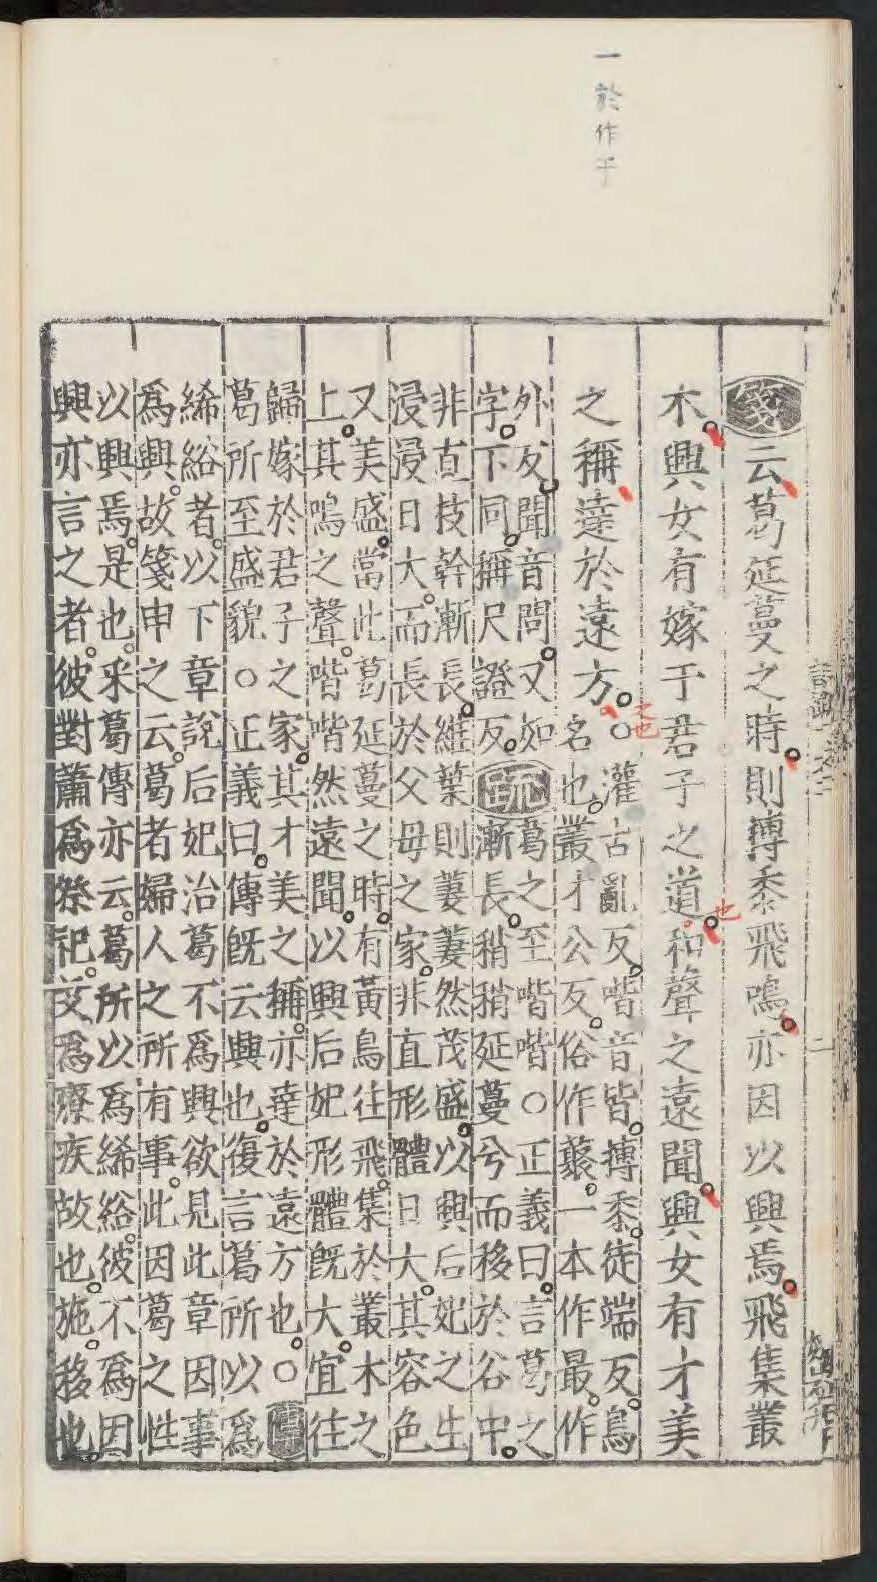 一於作乎
箋云葛延蔓之時則摶黍飛鳴亦因以興焉飛集叢
木興女有嫁于君子之道和聲之遠聞興女有才美
也
之稱達於遠方○
之也
灌古亂反喈音皆摶黍徒端反鳥
名也叢才公反俗作藂一本作最作
外反聞音問又如
字下同稱尺證反
疏
葛之至喈喈○正義曰言葛之
漸長稍稍延蔓兮而移於谷中
非直技幹漸長維葉則萋萋然茂盛以興后妃之生
浸浸日大而長於父母之家非直形體日大其容色
又美盛當此葛延蔓之時有黃鳥往飛集於叢木之
上其鳴之聲喈喈然遠聞以興后妃形體既大宜往
歸嫁於君子之家其才美之稱亦達於遠方也○傳
葛所至盛貌○正義曰傳既云興也復言葛所以爲
絺綌者以下章說后妃治葛不爲興欲見此章因事
爲興故箋申之云葛者婦人之所有事此因葛之性
以興焉是也采葛傳亦云葛所以爲絺綌彼不爲因
興亦言之者彼對蕭爲祭祀艾爲療疾故也施移也